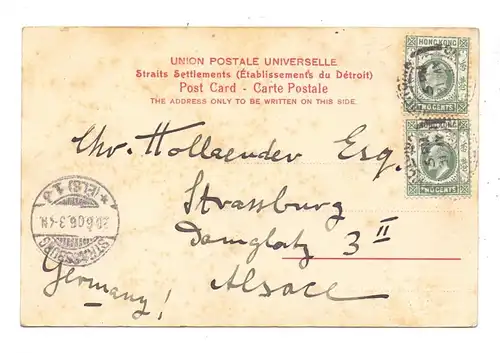 UNION POSTALE UNIVERSELLE.
Straits Settlements (Établissements du Détroit)
Post Card - Carte Postale
THE ADDRESS ONLY TO BE WRITTEN ON THIS SIDE.
HONG KONG
TWO CENTS
HONG KONG
TWO CENTS
Chr. Hollaender Esq.
Strassburg
Domplatz 3 II
Alsace
Germany!
STRASSBURG
20.6.06.3-4N.
* (ELS) 1 *